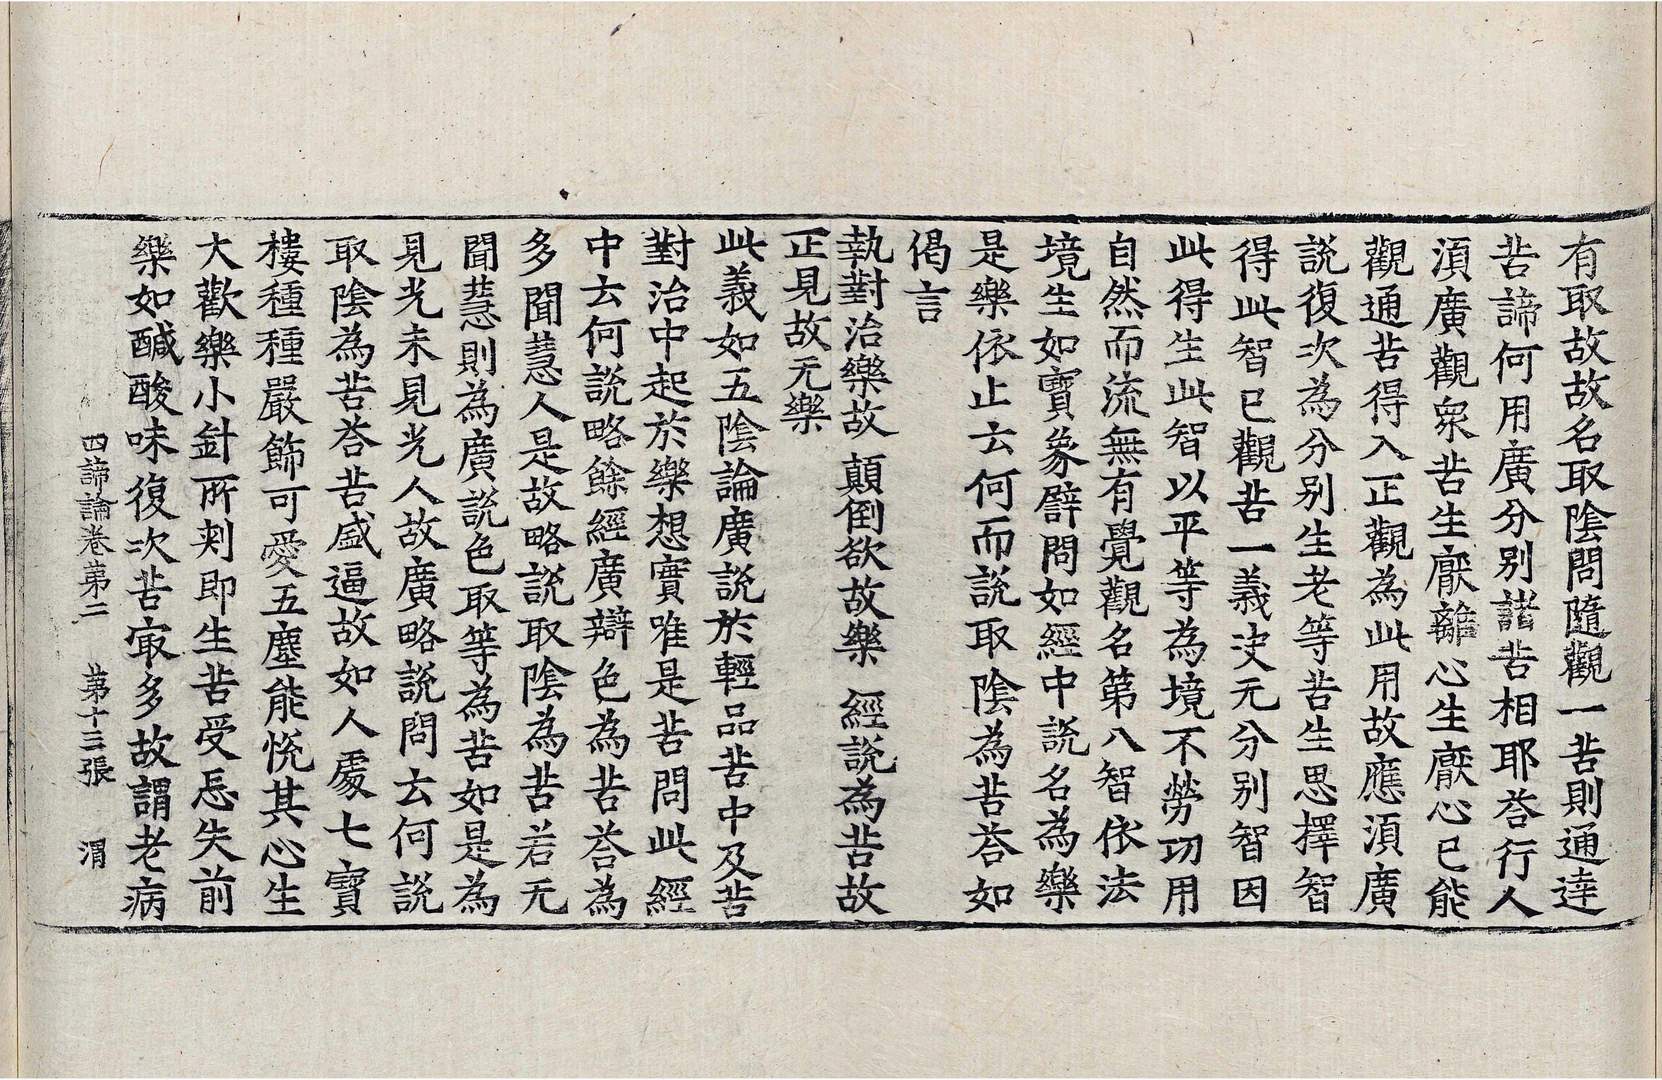 有取故故名取陰問隨觀一苦則通達
苦諦何用廣分別諸苦相耶荅行人
湏廣觀衆苦生厭離心生厭心已能
觀通苦得入正觀為此用故應湏廣
說復次為分別生老等苦生思擇智
得此智已觀苦一義決无分別智因
此得生此智以平等為境不勞功用
自然而流無有覺觀名第八智依法
境生如寶象譬問如經中説名為樂
是樂依止云何而説取陰為苦荅如
偈言
執對治樂故 顛倒欲故樂 經説為苦故
正見故无樂
此義如五陰論廣說於輕品苦中及苦
對治中起於樂想實唯是苦問此經
中云何説略餘經廣辯色為苦荅為
多聞慧人是故略説取陰為苦若无
聞慧則為廣説色取等為苦如是為
見光未見光人故廣略説問云何説
取陰為苦荅苦盛逼故如人處七寶
樓種種嚴飾可愛五塵能悅其心生
大歡樂小針所刾即生苦受忘失前
樂如醎酸味復次苦㝡多故謂老病
四諦論卷第二 第十三張 渭